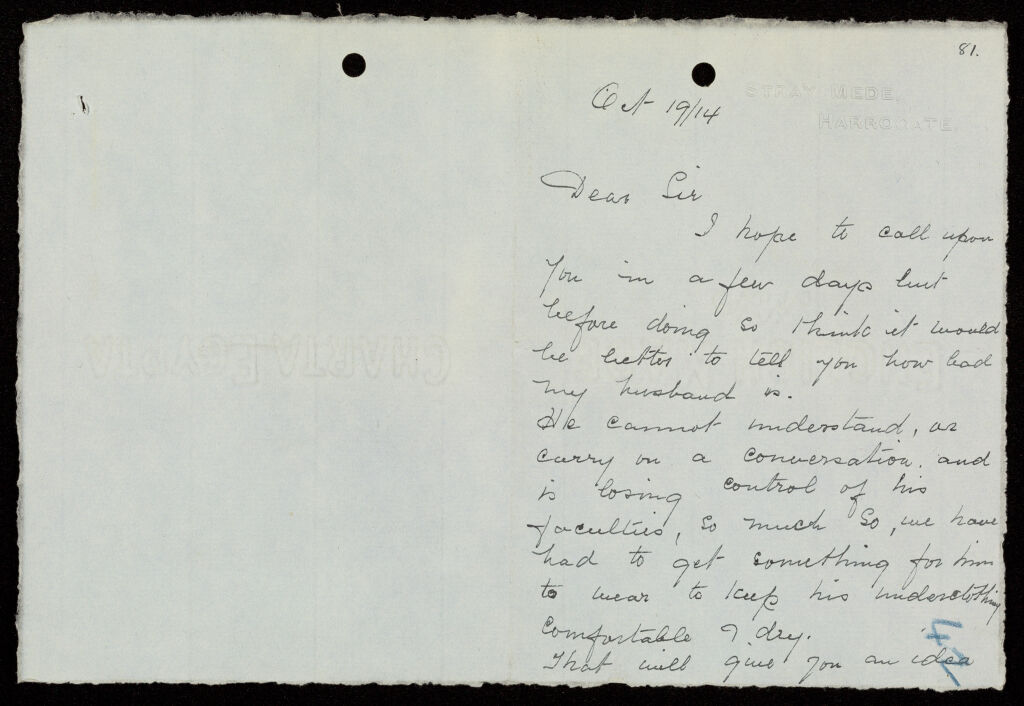 81.
STRAY MEDE,
HARROGATE.
Oct 19/14
Dear Sir
I hope to call upon
you in a few days but
before doing so think it would
be better to tell you how bad
my husband is.
He cannot understand, or
carry on a conversation, and
is losing control of his
faculties, so much so, we have
had to get something for him
to wear to keep his underclothing
comfortable & dry.
That will give you an idea
42